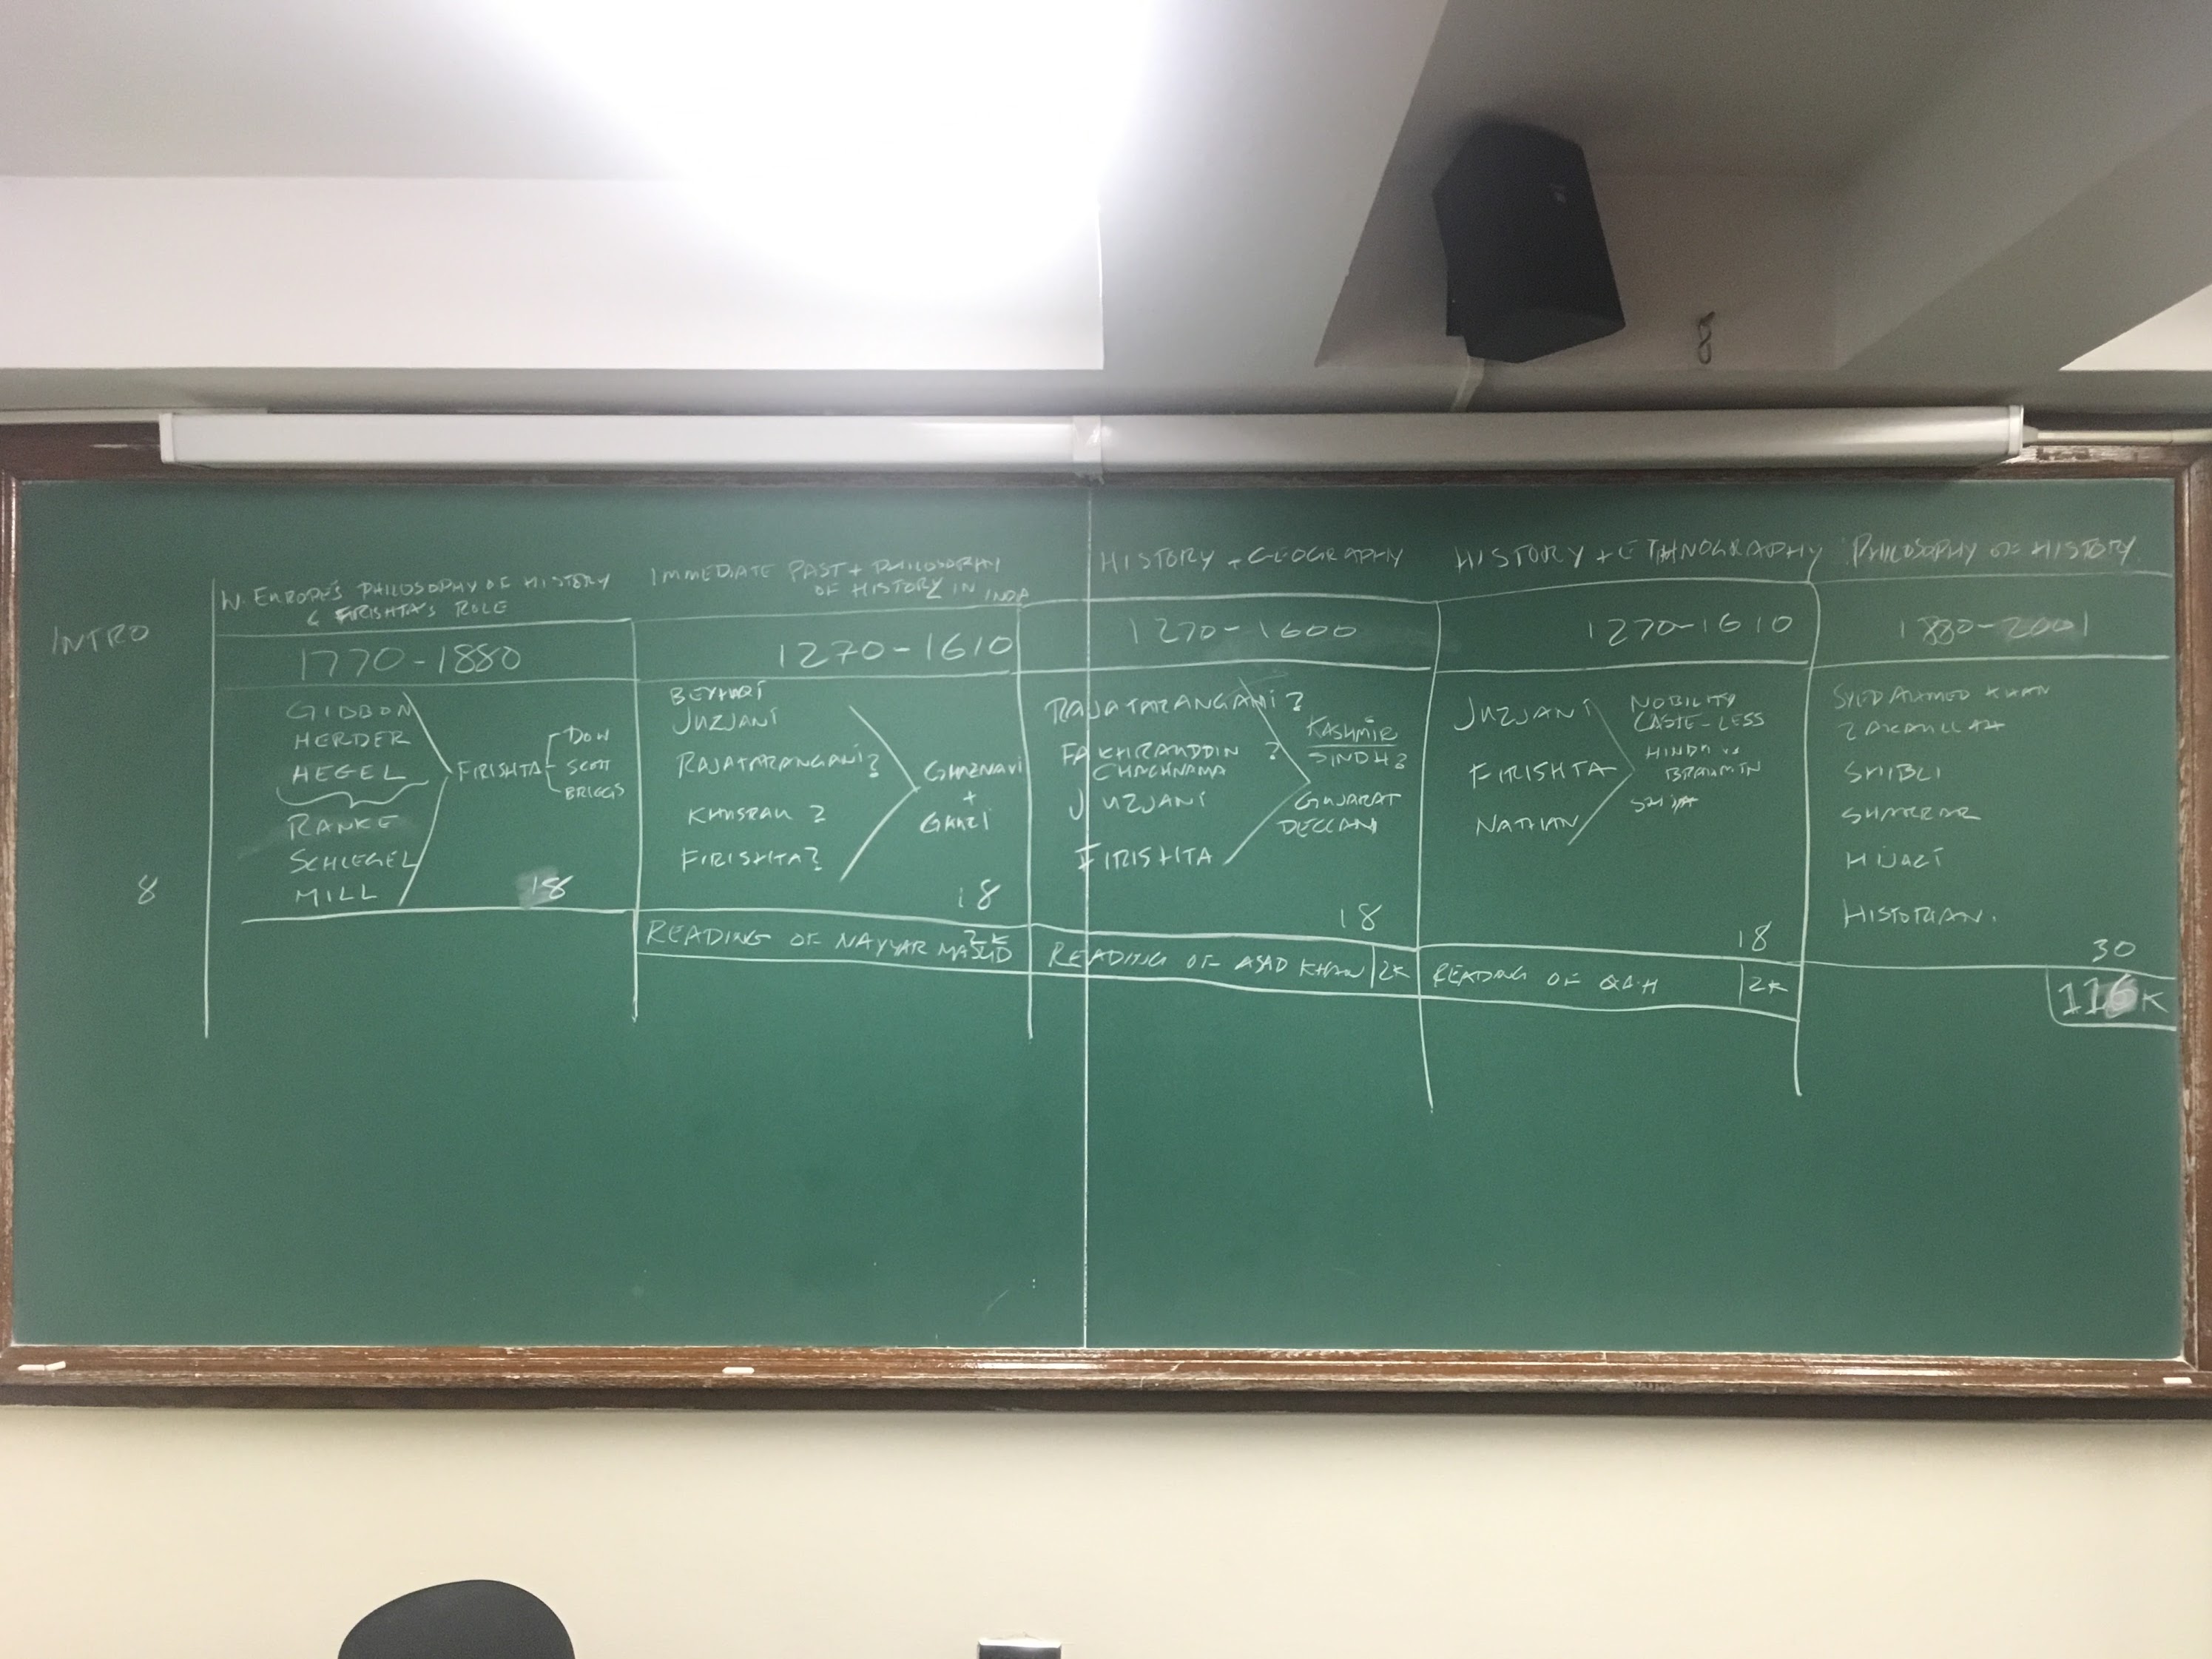 INTRO
8
W. EUROPE'S PHILOSOPHY OF HISTORY
& FIRISHTA'S ROLE
1770-1880
GIBBON
HERDER
HEGEL
RANKE
SCHLEGEL
MILL
FIRISHTA
DOW
SCOTT
BRIGGS
18
IMMEDIATE PAST + PHILOSOPHY
OF HISTORY IN INDIA
1270-1610
JUZJANI
RAJATARANGANI?
KHUSRAU ?
FIRISHTA?
GHAZNAVI
+
GHAZI
18
READING OF NAYYAR MASUD 2K
HISTORY + GEOGRAPHY
1270-1600
RAJATARANGANI?
FAKHRAUDDIN ?
CHACHNAMA
JUZJANI
FIRISHTA
KASHMIR
SINDH?
GUJARAT
DECCAN
18
READING OF ASAD KHAN 2K
HISTORY + ETHNOGRAPHY
1270-1610
JUZJANI
FIRISHTA
NATHAN
NOBILITY
CASTE-LESS
HINDU vs
BRAHMIN
18
READING OF QAH 2K
PHILOSOPHY OF HISTORY
1880-2001
SYED AHMED KHAN
ZAKAULLAH
SHIBLI
SHARRAR
HIJAZI
HISTORIAN.
30
116K